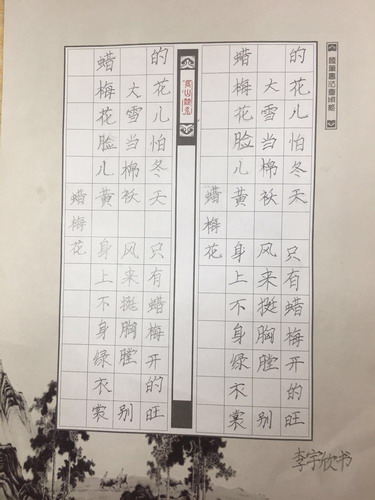 蜡梅花
蜡梅花脸儿黄 身上不身绿衣裳
大雪当棉袄 风来挺胸膛 别
的花儿怕冬天 只有蜡梅开的旺
蜡梅花
蜡梅花脸儿黄 身上不身绿衣裳
大雪当棉袄 风来挺胸膛 别
的花儿怕冬天 只有蜡梅开的旺
李宇欣书